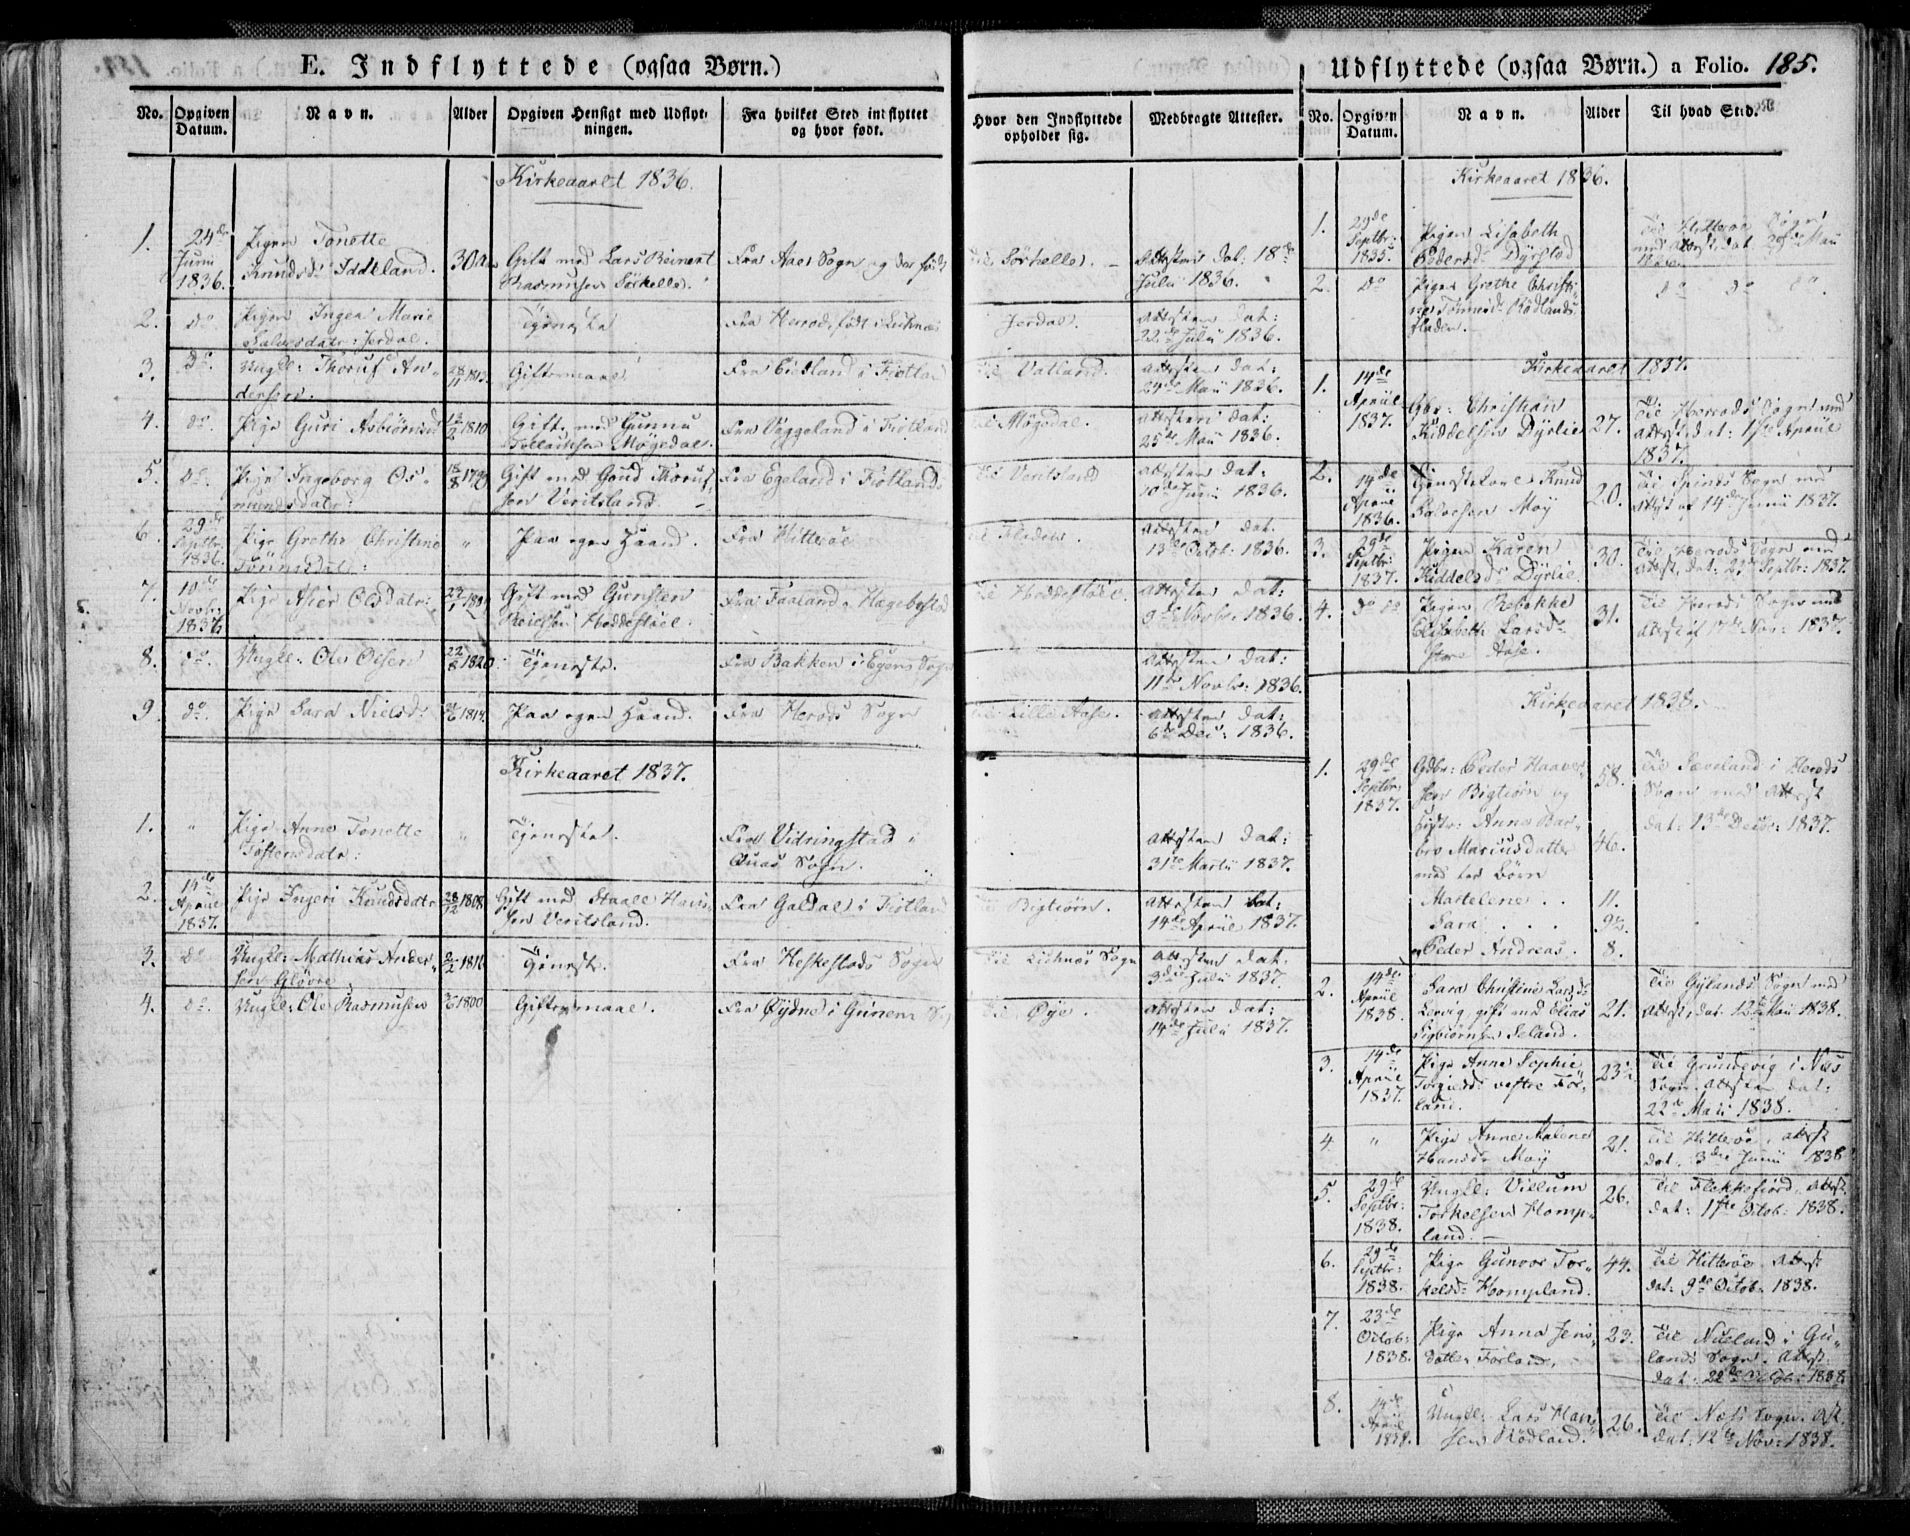 E. Indflyttede (ogsaa Børn.)
No. Opgiven Datum. Navn. Alder Opgiven Hensigt med Udflytningen. Fra hvilket Sted indflyttet og hvor født.
Hvor den Indflyttede opholder sig. Medbragte Attester.
Kirkeaaret 1836.
1. 24de Junii 1836. Pigen Tonette Knudsd: Iddeland. 30 a Gift med Lars Reinert Rasmusen Sørhelle. Fra Aaes Sogn og der født Til Sørhelle. Attesten dat. 18de Julii 1836.
2. do. Pigen Ingea Marie Salvesdatr: Jerdal. Tjeneste Fra Herrod, født i Lichnæs Jerdal. Attesten dat: 22de Julii 1836.
3. do. Ungkl: Thoruf Andersen. 28/11 1813. Giftermaal Fra Eidland i Fiotland Til Vatland. Attesten dat: 24de Maii 1836.
4. do. Pige Guri Asbiørnsd 13/2 1810 Gift med Gunnu Møgedal. Fra Væggeland i Fiotland Til Møgedal. Attesten dat: 25de Maii 1836.
5. do. Pige Ingeborg Osmundsdatr: 18/8 Gift med Goud Thorufsen Veritsland. Fra Egeland i Fiotland Til Veritsland Attesten dat: 10de Junii 1836.
6. 29de Septbr. 1836. Pige Grethe Christine Tønnesdatr: " Paa egen Haand. Fra Hitterøe Til Fladen. Attesten dat. 13de Octob. 1836.
7. 10de Novbr. 1836 Pige Aser Olsdatr: Gift med Gunsten Heddestøel. Fra Faaland i Hægebostad Til Heddestøel. Attesten dat: 9de Novbr. 1836.
8. do. Ungkl: Ole Olsen 22/8 1820 Tjeneste. Fra Bakken i Egers Sogn Attesten dat: 11de Novbr: 1836.
9. do. Pige Sara Nielsd: 1814. Paa egen Haand. Fra Herods Sogn Til Lille Aase. Attesten dat: 6te Dec: 1836.
Kirkeaaret 1837.
1. " Pige Anne Tonette Tostensdatr: " Tjeneste. Fra Vidringstad i Quas Sogn. Attesten dat: 31te Martii 1837.
2. 14de Apriil 1837. Pige Ingeri Knudsdatr 1808 Gift med Staale Hansen Veritsland. Fra Galdal i Fiotland Til Bigtiørn. Attesten dat: 14de Apriil 1837.
3. do Ungkl: Mathias Andersen Gløvre 1816 Tjeneste. Fra Heskestads Sogn Til Lichnæs Sogn Attesten dat: 3die Julii 1837.
4. do. Ungkl: Ole Rasmusen 1800 Giftermaal. Fra Øydne i Gunem Til Øye. Attesten dat: 14de Julii 1837.
Udflyttede (ogsaa Børn.) a Folio. 185.
No. Opgiven Datum. Navn. Alder Til hvad Sted.
Kirkeaaret 1836.
1. 29de Septbr: 1835. Pigen Lisabeth Pedersd: Dyrstad Til Hitterøe Sogn med Attest dat. 29de Maii
2. do Pigen Grethe Christine Tønnesd: Rødlandsfladen. do do do.
Kirkeaaret 1837.
1. 14de Apriil 1837. Gbr: Christian Kiddelsen Dyrlie 27. Til Herrods Sogn med Attest dat: 1ste Apriil 1837.
2. 14de Apriil 1836. Tjenestekarl Knud Salvesen Moy 20. Til Spinds Sogn med Attest af 14de Junii 1837.
3. 29de Septbr: 1837. Pigen Karen Kiddelsd: Dyrlie. 30. Til Herrods Sogn med Attest, dat. 23de Septbr: 1837.
4. do do Pigen Rebekke Elisabeth Larsd: Store Aase. 31. Til Herrods Sogn med Attest af 17de Nov: 1837.
Kirkeaaret 1838.
1. 29de Septbr: 1837. Gdbr: Peder Haaversen Bigtiørn og 58. Til Sæveland i Herods Sogn med Attest dat: 13de Decbr: 1837.
hustr: Anne Barbro Mariusdatter 46.
med tre Børn
Martelene . . 11.
Sara . . . 9½.
Peder Andreas. 8.
2. 14de Apriil 1838. Sara Christine Larsd: Lervig, gift med Elias Sigbiørnsen Seland. 21. Til Gylands Sogn med Attest, dat. 12te Maii 1838.
3. 14de Apriil 1837. Pige Anne Sophie Torgiersd: vestre Førland. 23½ Til Grundevig i Næs Sogn. Attesten dat: 22de Maii 1838.
4 " Pige Anne Malene Hansd: Moy 21. Til Hitterøe, Attest dat. 3die Junii 1838
5. 29de Septbr: 1838. Ungkl: Villum Torkelsen Hompland. 26. Til Flekkefiord, Attest. dat: 1ste Octob: 1838.
6. 29de Septbr: 1838. Pige Gunvor Torkelsd: Hompland. 44. Til Hitterøe Attest dat: 9de Octob: 1838.
7. 23de Octob: 1838. Pige Anna Jensdatter Førland. 23. Til Nuland i Gylands Sogn. Attest. dat. 22de Octob: 1838.
8. 14de Apriil 1838. Ungkl: Lars Hansen Rødland. 26. Til Næs Sogn. Att. dat: 12te Nov: 1838.